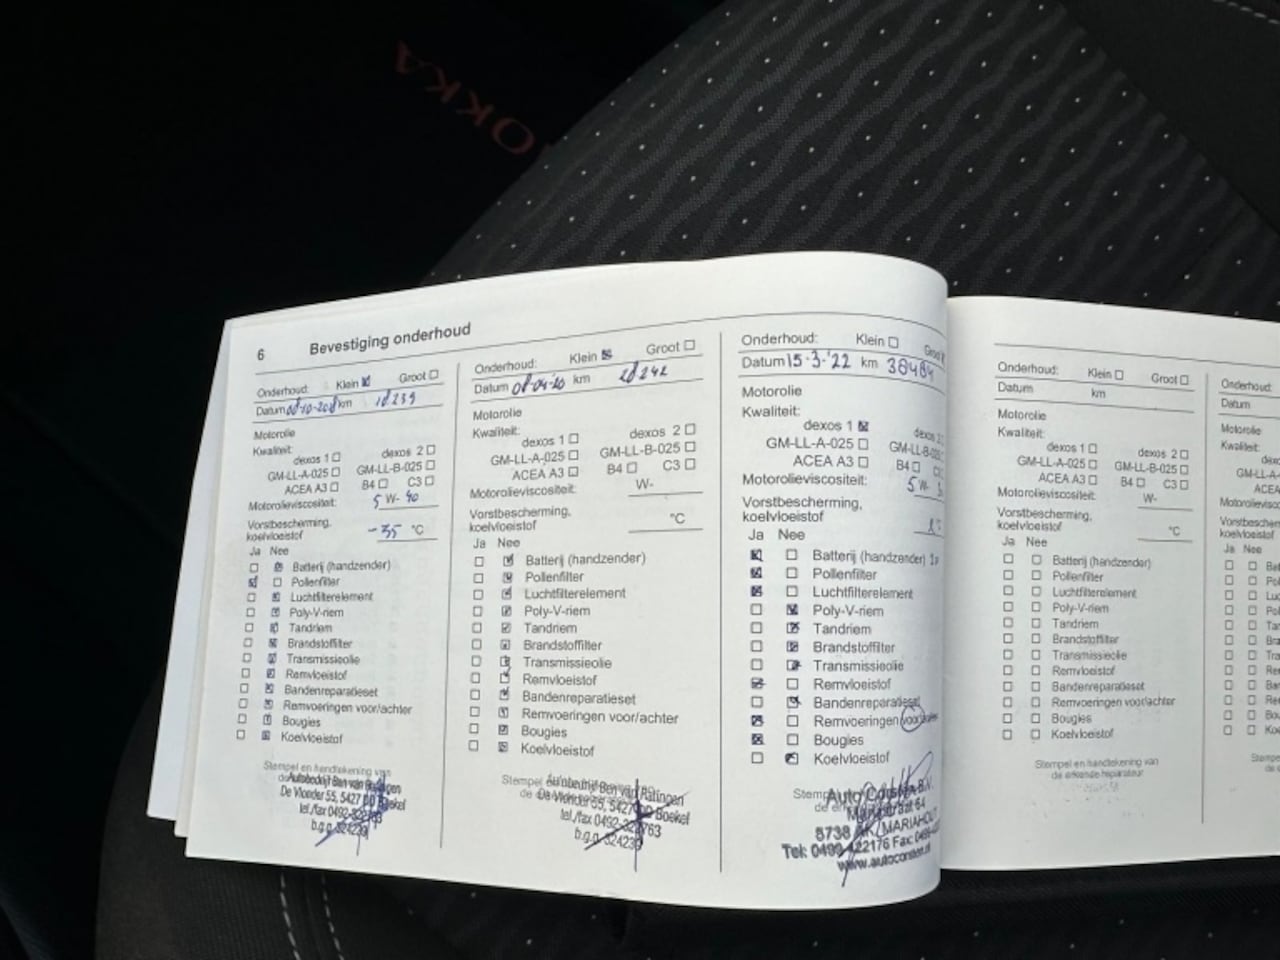 OKKA
6 Bevestiging onderhoud
Onderhoud: Klein Groot
Datum km 18239
Motorolie
Kwaliteit:
dexos 1 dexos 2
GM-LL-A-025 GM-LL-B-025
ACEA A3 B4 C3
Motorolieviscositeit: 5 W- 40
Vorstbescherming,
koelvloeistof -35 °C
Ja Nee
Batterij (handzender)
Pollenfilter
Luchtfilterelement
Poly-V-riem
Tandriem
Brandstoffilter
Transmissieolie
Remvloeistof
Bandenreparatieset
Remvoeringen voor/achter
Bougies
Koelvloeistof
Stempel en handtekening van
Autobedrijf Ben van
De Vlonder 55, 5427 DD Boekel
tel./fax 0492-322763
b.g.g. 324239
Onderhoud: Klein Groot
Datum 08-04-20 km 28242
Motorolie
Kwaliteit:
dexos 1 dexos 2
GM-LL-A-025 GM-LL-B-025
ACEA A3 B4 C3
Motorolieviscositeit: W-
Vorstbescherming,
koelvloeistof °C
Ja Nee
Batterij (handzender)
Pollenfilter
Luchtfilterelement
Poly-V-riem
Tandriem
Brandstoffilter
Transmissieolie
Remvloeistof
Bandenreparatieset
Remvoeringen voor/achter
Bougies
Koelvloeistof
Stempel
Autobedrijf Ben van
De Vlonder 55, 5427 DD Boekel
tel./fax 0492-322763
b.g.g. 324239
Onderhoud: Klein
Datum 15-3-'22 km 38484
Motorolie
Kwaliteit:
dexos 1
GM-LL-A-025
ACEA A3 B4
Motorolieviscositeit: 5 W-
Vorstbescherming,
koelvloeistof
Ja Nee
Batterij (handzender)
Pollenfilter
Luchtfilterelement
Poly-V-riem
Tandriem
Brandstoffilter
Transmissieolie
Remvloeistof
Bandenreparatieset
Remvoeringen
Bougies
Koelvloeistof
Auto B.V.
64
5738 AK MARIAHOUT
Tel: 0499-422176 Fax:
Onderhoud: Klein Groot
Datum km
Motorolie
Kwaliteit:
dexos 1 dexos 2
GM-LL-A-025 GM-LL-B-025
ACEA A3 B4 C3
Motorolieviscositeit: W-
Vorstbescherming,
koelvloeistof °C
Ja Nee
Batterij (handzender)
Pollenfilter
Luchtfilterelement
Poly-V-riem
Tandriem
Brandstoffilter
Transmissieolie
Remvloeistof
Bandenreparatieset
Remvoeringen voor/achter
Bougies
Koelvloeistof
Stempel en handtekening van
de erkende reparateur
Onderhoud:
Datum
Motorolie
Ja Nee